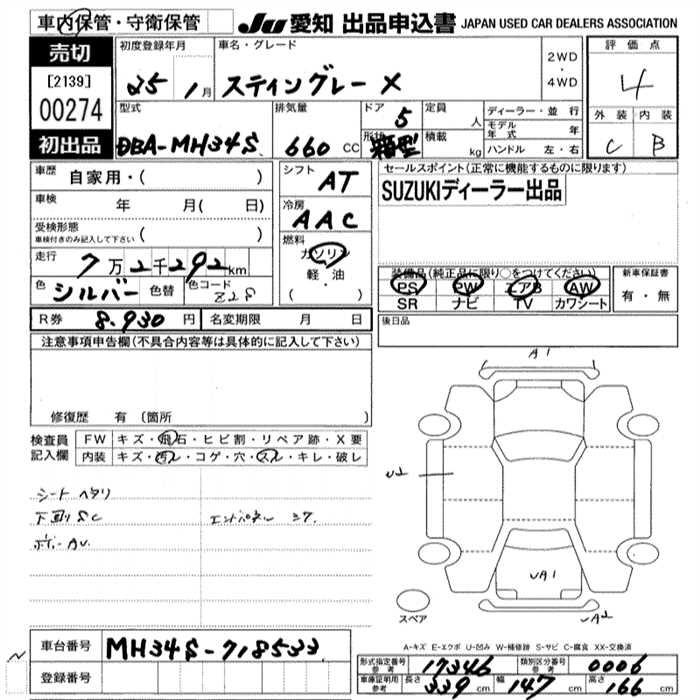 車内保管・守衛保管
JU 愛知 出品申込書 JAPAN USED CAR DEALERS ASSOCIATION
売切
[2139]
00274
初出品
初度登録年月
25 1月
車名・グレード
スティングレー X
2WD
・
4WD
評価点
4
外装 内装
C B
型式
DBA-MH34S
排気量
660 CC
ドア 5
形状 箱型
定員 人
積載 kg
ディーラー・並行
モデル年式 年
ハンドル 左・右
車歴 自家用・( )
車検 年 月( 日)
受検形態
車検付きのみ記入して下さい ( )
走行 7万2千292km
色 シルバー 色替 色コード Z2S
シフト AT
冷房 AAC
燃料
ガソリン
軽・油
( ・ )
セールスポイント(正常に機能するものに限ります)
SUZUKIディーラー出品
装備品(純正品に限り○をつけてください)
PS PW エアB AW
SR ナビ TV カワシート
新車保証書
有・無
R券 8.930円 名変期限 月 日
後日品
注意事項申告欄(不具合内容等は具体的に記入して下さい)
修復歴 有 (箇所
検査員記入欄
FW キズ・飛石・ヒビ割・リペア跡・X要
内装 キズ・汚レ・コゲ・穴・スレ・キレ・破レ
シート ヘタリ
下廻り SC
エンドパネル
ボデー AU
A1
U2
UA1
UA2
スペア
A-キズ E-エクボ U-凹み W-補修跡 S-サビ C-腐食 XX-交換済
車台番号 MH34S-718533
登録番号
形式指定番号 参考 17346 類別区分番号 参考 0006
車庫証明用 参考 長さ 339cm 幅 147cm 高さ 166cm